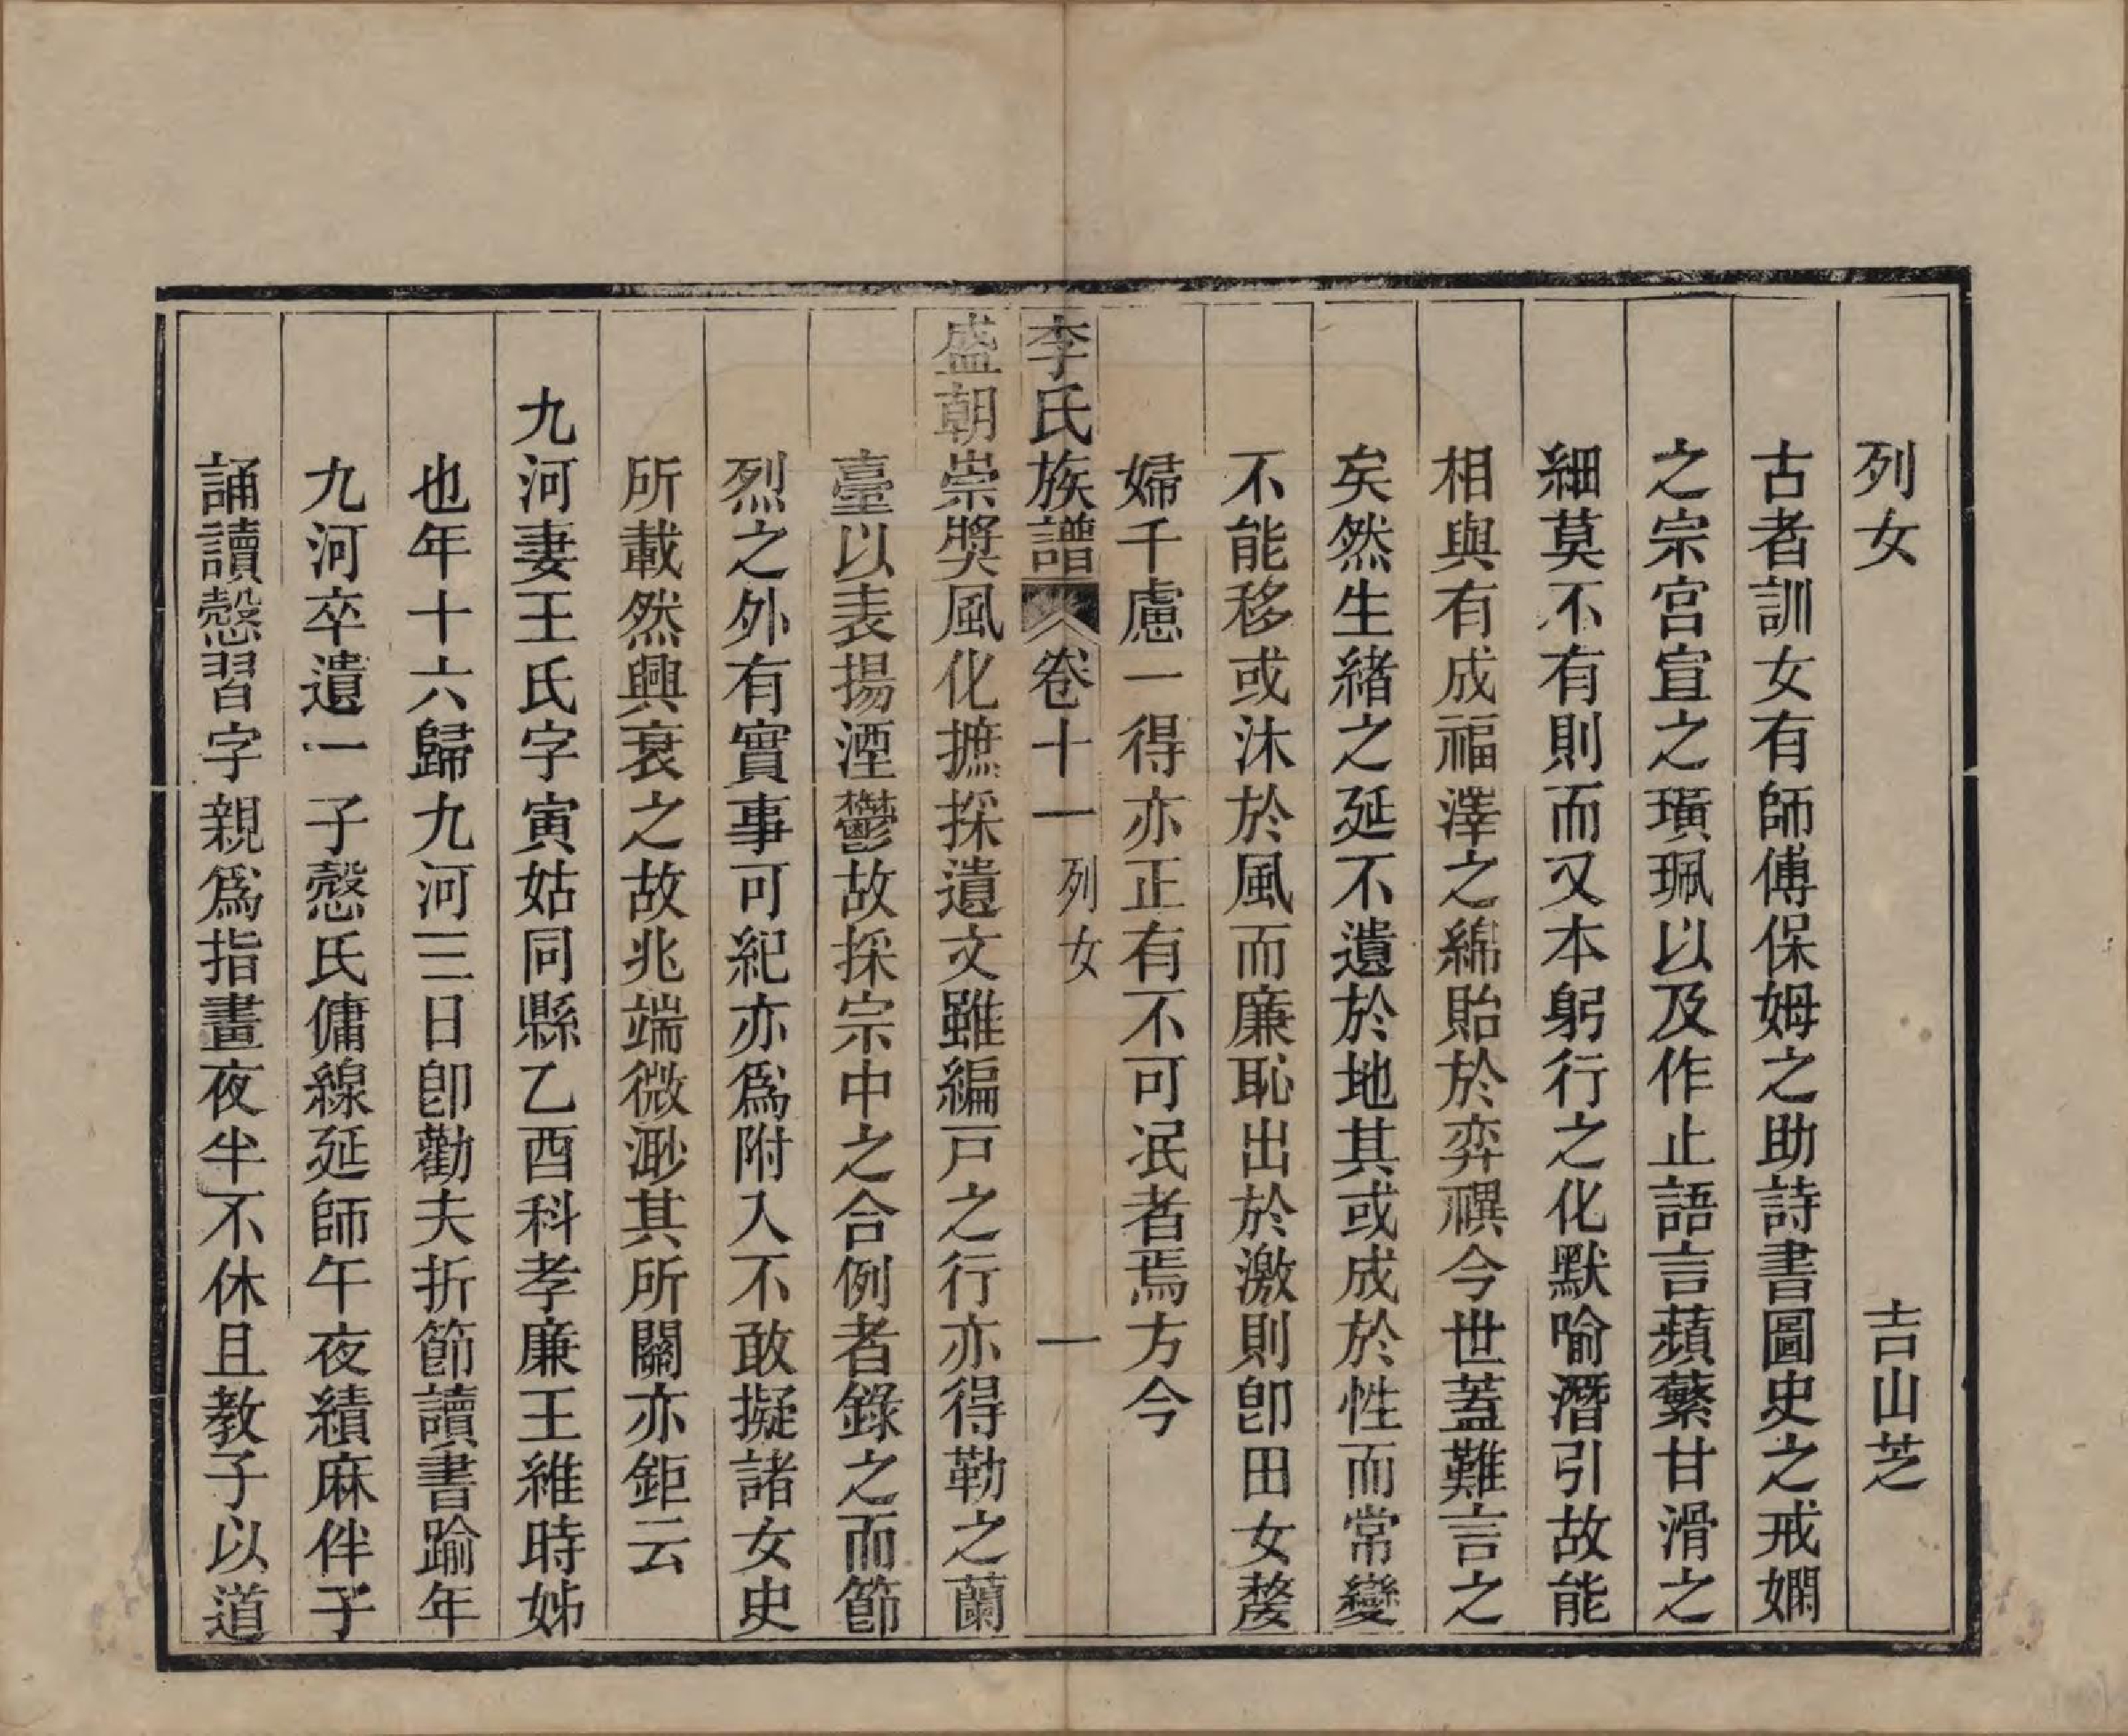 列女　吉山芝
古者訓女有師傅保姆之助詩書圖史之戒嫻
之宗宮宣之璜珮以及作止語言蘋蘩甘滑之
細莫不有則而又本躬行之化默喻潛引故能
相與有成福澤之綿貽於弈禩今世蓋難言之
矣然生緒之延不遺於地其或成於性而常變
不能移或沐於風而廉恥出於激則卽田女嫠
婦千慮一得亦正有不可泯者焉方今
李氏族譜　卷十一　列女　一
盛朝崇獎風化摭採遺文雖編戸之行亦得勒之蘭
臺以表揚湮鬱故採宗中之合例者錄之而節
烈之外有實事可紀亦爲附入不敢擬諸女史
所載然興衰之故兆端微渺其所關亦鉅云
九河妻王氏字寅姑同縣乙酉科孝廉王維時姊
也年十六歸九河三日卽勸夫折節讀書踰年
九河卒遺一子愨氏傭線延師午夜績麻伴子
誦讀愨習字親爲指畫夜半不休且教子以道